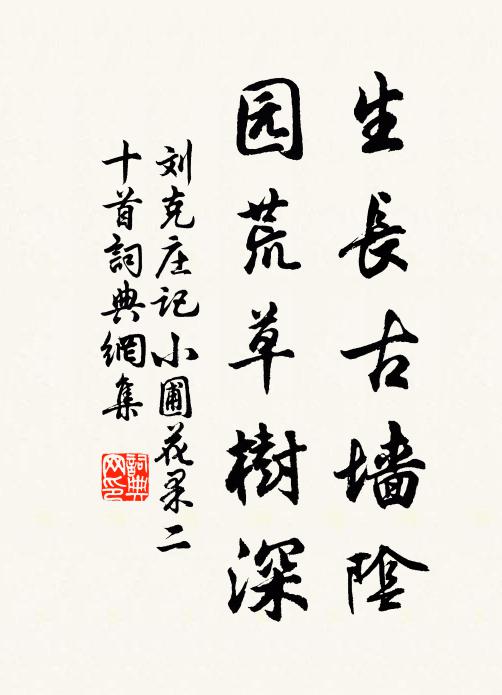 生長古墙陰
园荒草樹深
刘克庄记小圃花果二
十首詞典網集
詞典网印